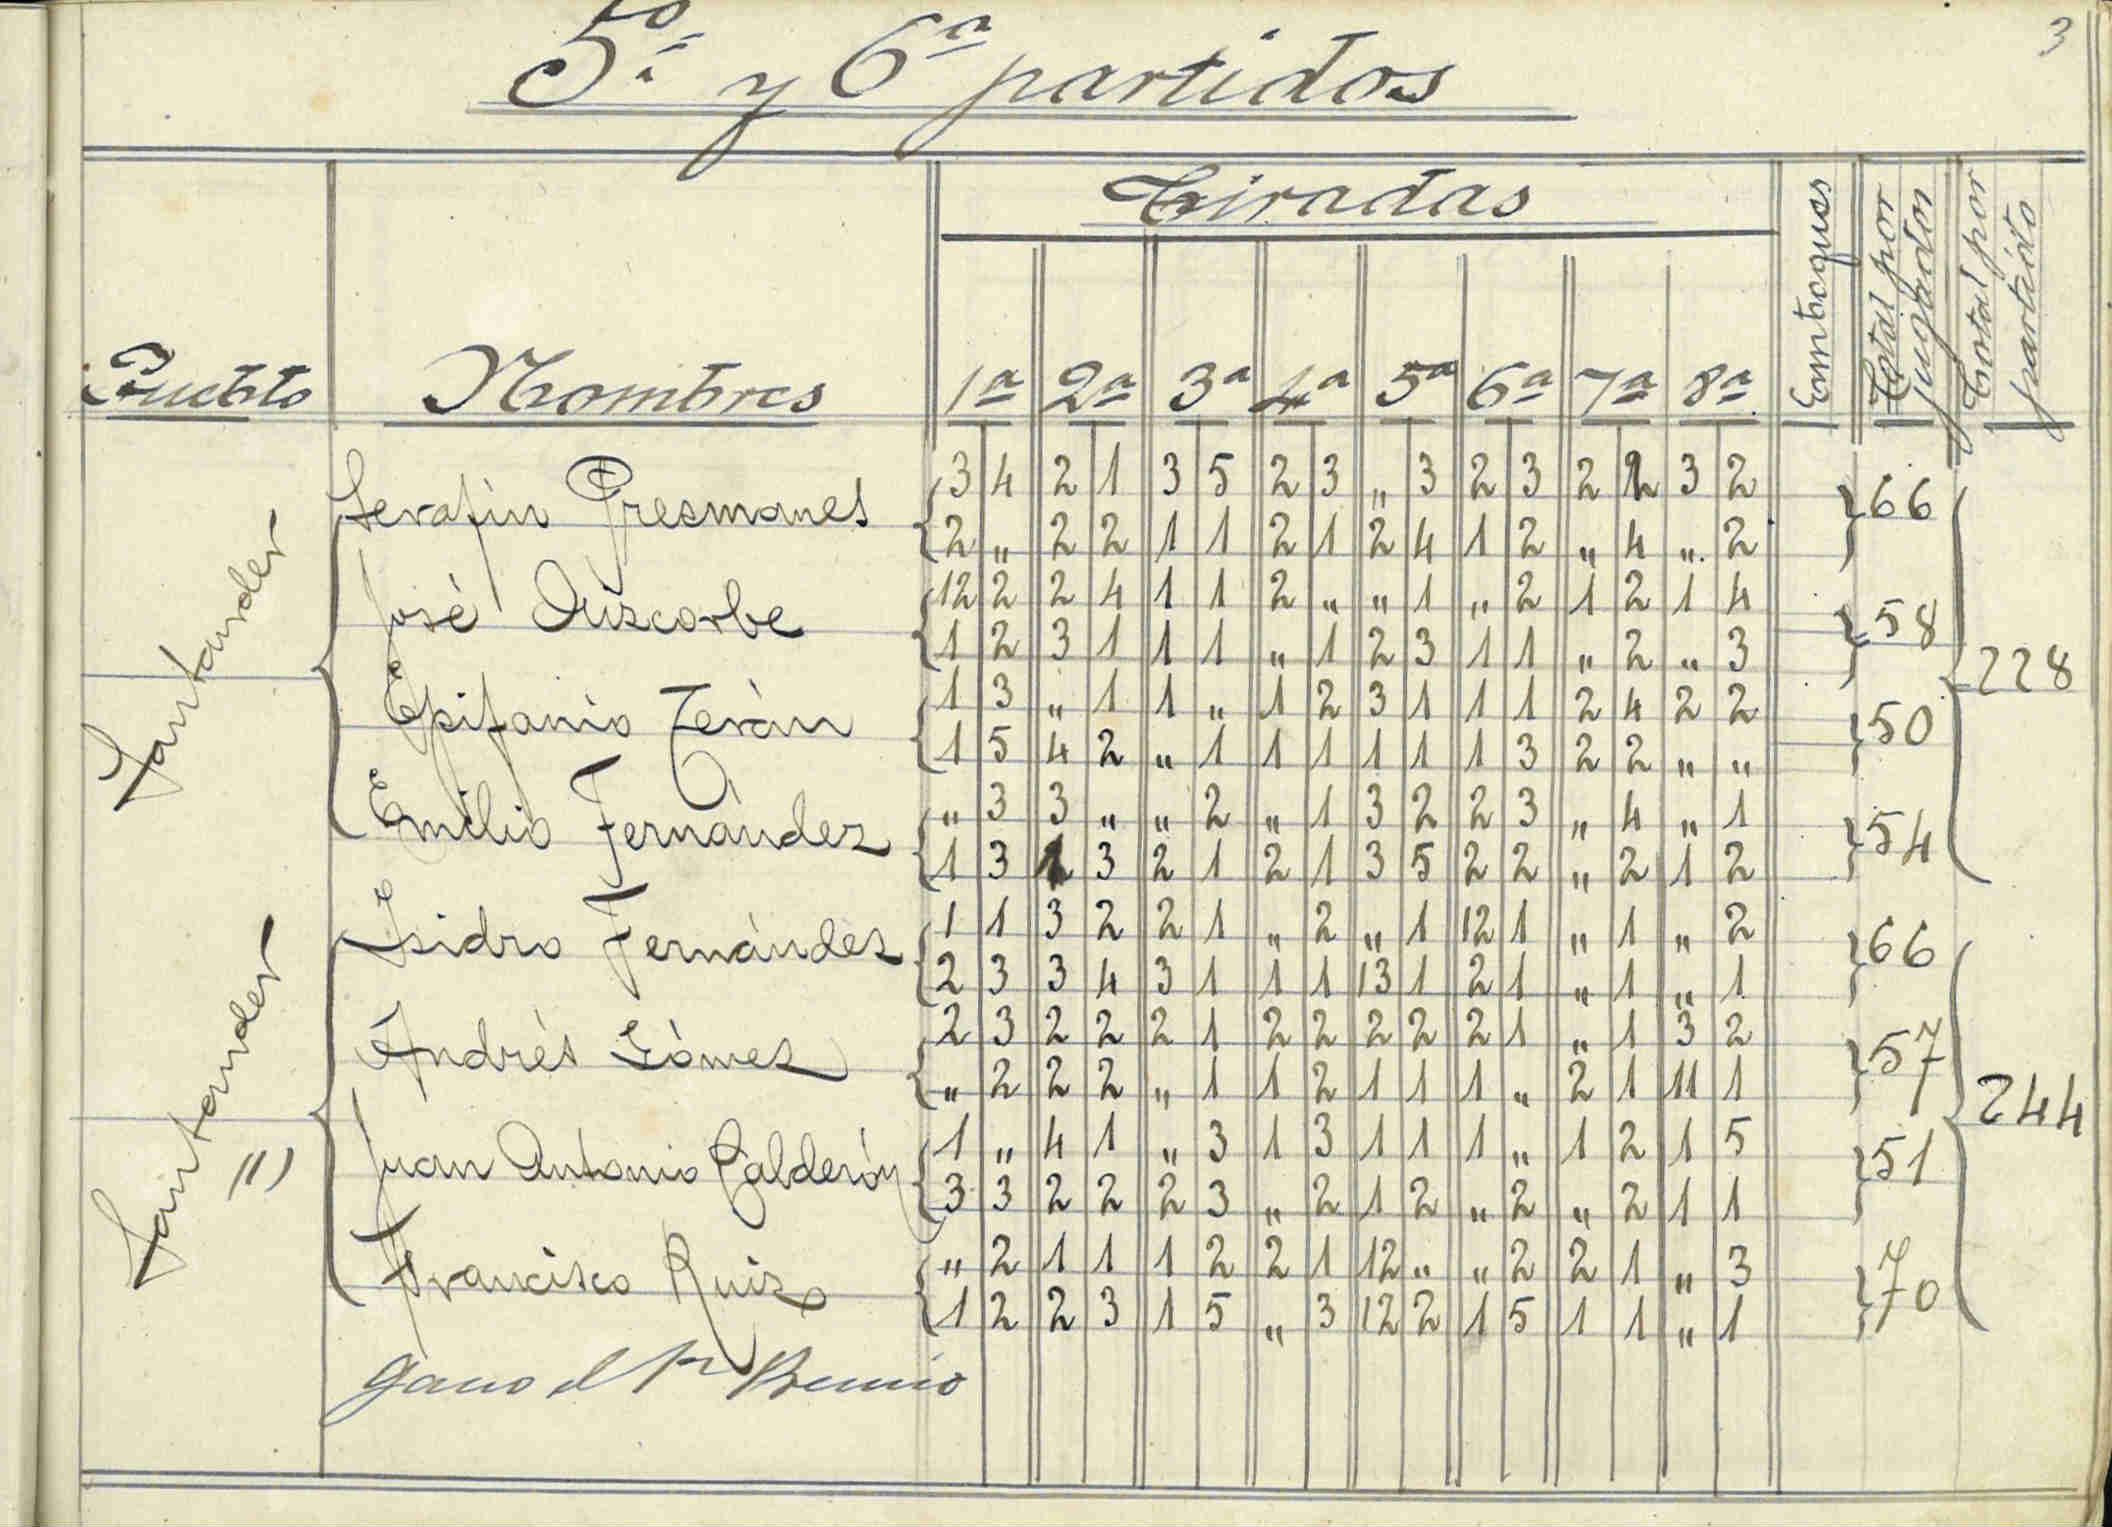 3
5º y 6ª partidos
Pueblo Nombres Tiradas Emboques Total por jugador Total por partido
1ª 2ª 3ª 4ª 5ª 6ª 7ª 8ª
Santander
Serafin Presmanes 3 4 2 1 3 5 2 3 „ 3 2 3 2 2 3 2 66
2 „ 2 2 1 1 2 1 2 4 1 2 „ 4 „ 2
José 12 2 2 4 1 1 2 „ „ 1 „ 2 1 2 1 4 58
1 2 3 1 1 1 „ 1 2 3 1 1 „ 2 „ 3
228
Epifanio Terán 1 3 „ 1 1 „ 1 2 3 1 1 1 2 4 2 2 50
1 5 4 2 „ 1 1 1 1 1 1 3 2 2 „ „
Emilio Fernández „ 3 3 „ „ 2 „ 1 3 2 2 3 „ 4 „ 1 54
1 3 1 3 2 1 2 1 3 5 2 2 „ 2 1 2
Santander
Isidro Fernández 1 1 3 2 2 1 „ 2 „ 1 12 1 „ 1 „ 2 66
2 3 3 4 3 1 1 1 13 1 2 1 „ 1 „ 1
Andrés Gómez 2 3 2 2 2 1 2 2 2 2 2 1 „ 1 3 2 57
„ 2 2 2 „ 1 1 2 1 1 1 „ 2 1 11 1
244
Juan Antonio Calderón 1 „ 4 1 „ 3 1 3 1 1 1 „ 1 2 1 5 51
3 3 2 2 2 3 „ 2 1 2 „ 2 „ 2 1 1
Francisco Ruiz „ 2 1 1 1 2 2 1 12 „ „ 2 2 1 „ 3 70
1 2 2 3 1 5 „ 3 12 2 1 5 1 1 „ 1
Gano el 1er Premio